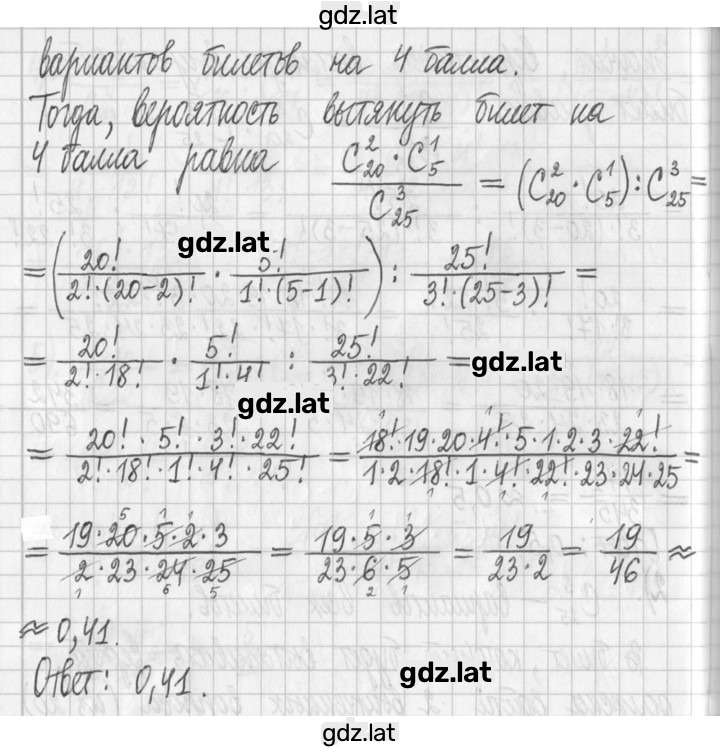 gdz.lat
вариантов билетов на 4 балла.
Тогда, вероятность вытянуть билет на
4 балла равна (C²₂₀ · C¹₅)/C³₂₅ = (C²₂₀ · C¹₅) : C³₂₅ =
gdz.lat
= (20!/(2!·(20-2)!) · 5!/(1!·(5-1)!)) : 25!/(3!·(25-3)!) =
= 20!/(2!·18!) · 5!/(1!·4!) : 25!/(3!·22!) =
gdz.lat
gdz.lat
= (20! · 5! · 3! · 22!)/(2! · 18! · 1! · 4! · 25!) = (18!·19·20·4!·5·1·2·3·22!)/(1·2·18!·1·4!·22!·23·24·25) =
= (19·20·5·2·3)/(2·23·24·25) = (19·5·3)/(23·6·5) = 19/(23·2) = 19/46 ≈
≈ 0,41.
Ответ: 0,41.
gdz.lat
gdz.lat